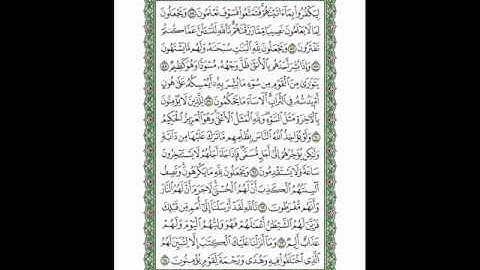 لِيَكْفُرُوا۟ بِمَآ ءَاتَيْنَٰهُمْ فَتَمَتَّعُوا۟ فَسَوْفَ تَعْلَمُونَ ٥٥ وَيَجْعَلُونَ
لِمَا لَا يَعْلَمُونَ نَصِيبًا مِّمَّا رَزَقْنَٰهُمْ تَٱللَّهِ لَتُسْـَٔلُنَّ عَمَّا كُنتُمْ
تَفْتَرُونَ ٥٦ وَيَجْعَلُونَ لِلَّهِ ٱلْبَنَٰتِ سُبْحَٰنَهُۥ وَلَهُم مَّا يَشْتَهُونَ
٥٧ وَإِذَا بُشِّرَ أَحَدُهُم بِٱلْأُنثَىٰ ظَلَّ وَجْهُهُۥ مُسْوَدًّا وَهُوَ كَظِيمٌ ٥٨
يَتَوَٰرَىٰ مِنَ ٱلْقَوْمِ مِن سُوٓءِ مَا بُشِّرَ بِهِۦٓ أَيُمْسِكُهُۥ عَلَىٰ هُونٍ
أَمْ يَدُسُّهُۥ فِى ٱلتُّرَابِ أَلَا سَآءَ مَا يَحْكُمُونَ ٥٩ لِلَّذِينَ لَا يُؤْمِنُونَ
بِٱلْـَٔاخِرَةِ مَثَلُ ٱلسَّوْءِ وَلِلَّهِ ٱلْمَثَلُ ٱلْأَعْلَىٰ وَهُوَ ٱلْعَزِيزُ ٱلْحَكِيمُ
٦٠ وَلَوْ يُؤَاخِذُ ٱللَّهُ ٱلنَّاسَ بِظُلْمِهِم مَّا تَرَكَ عَلَيْهَا مِن دَآبَّةٍ
وَلَٰكِن يُؤَخِّرُهُمْ إِلَىٰٓ أَجَلٍ مُّسَمًّى فَإِذَا جَآءَ أَجَلُهُمْ لَا يَسْتَـْٔخِرُونَ
سَاعَةً وَلَا يَسْتَقْدِمُونَ ٦١ وَيَجْعَلُونَ لِلَّهِ مَا يَكْرَهُونَ وَتَصِفُ
أَلْسِنَتُهُمُ ٱلْكَذِبَ أَنَّ لَهُمُ ٱلْحُسْنَىٰ لَا جَرَمَ أَنَّ لَهُمُ ٱلنَّارَ
وَأَنَّهُم مُّفْرَطُونَ ٦٢ تَٱللَّهِ لَقَدْ أَرْسَلْنَآ إِلَىٰٓ أُمَمٍ مِّن قَبْلِكَ
فَزَيَّنَ لَهُمُ ٱلشَّيْطَٰنُ أَعْمَٰلَهُمْ فَهُوَ وَلِيُّهُمُ ٱلْيَوْمَ وَلَهُمْ
عَذَابٌ أَلِيمٌ ٦٣ وَمَآ أَنزَلْنَا عَلَيْكَ ٱلْكِتَٰبَ إِلَّا لِتُبَيِّنَ لَهُمُ
ٱلَّذِى ٱخْتَلَفُوا۟ فِيهِ وَهُدًى وَرَحْمَةً لِّقَوْمٍ يُؤْمِنُونَ ٦٤